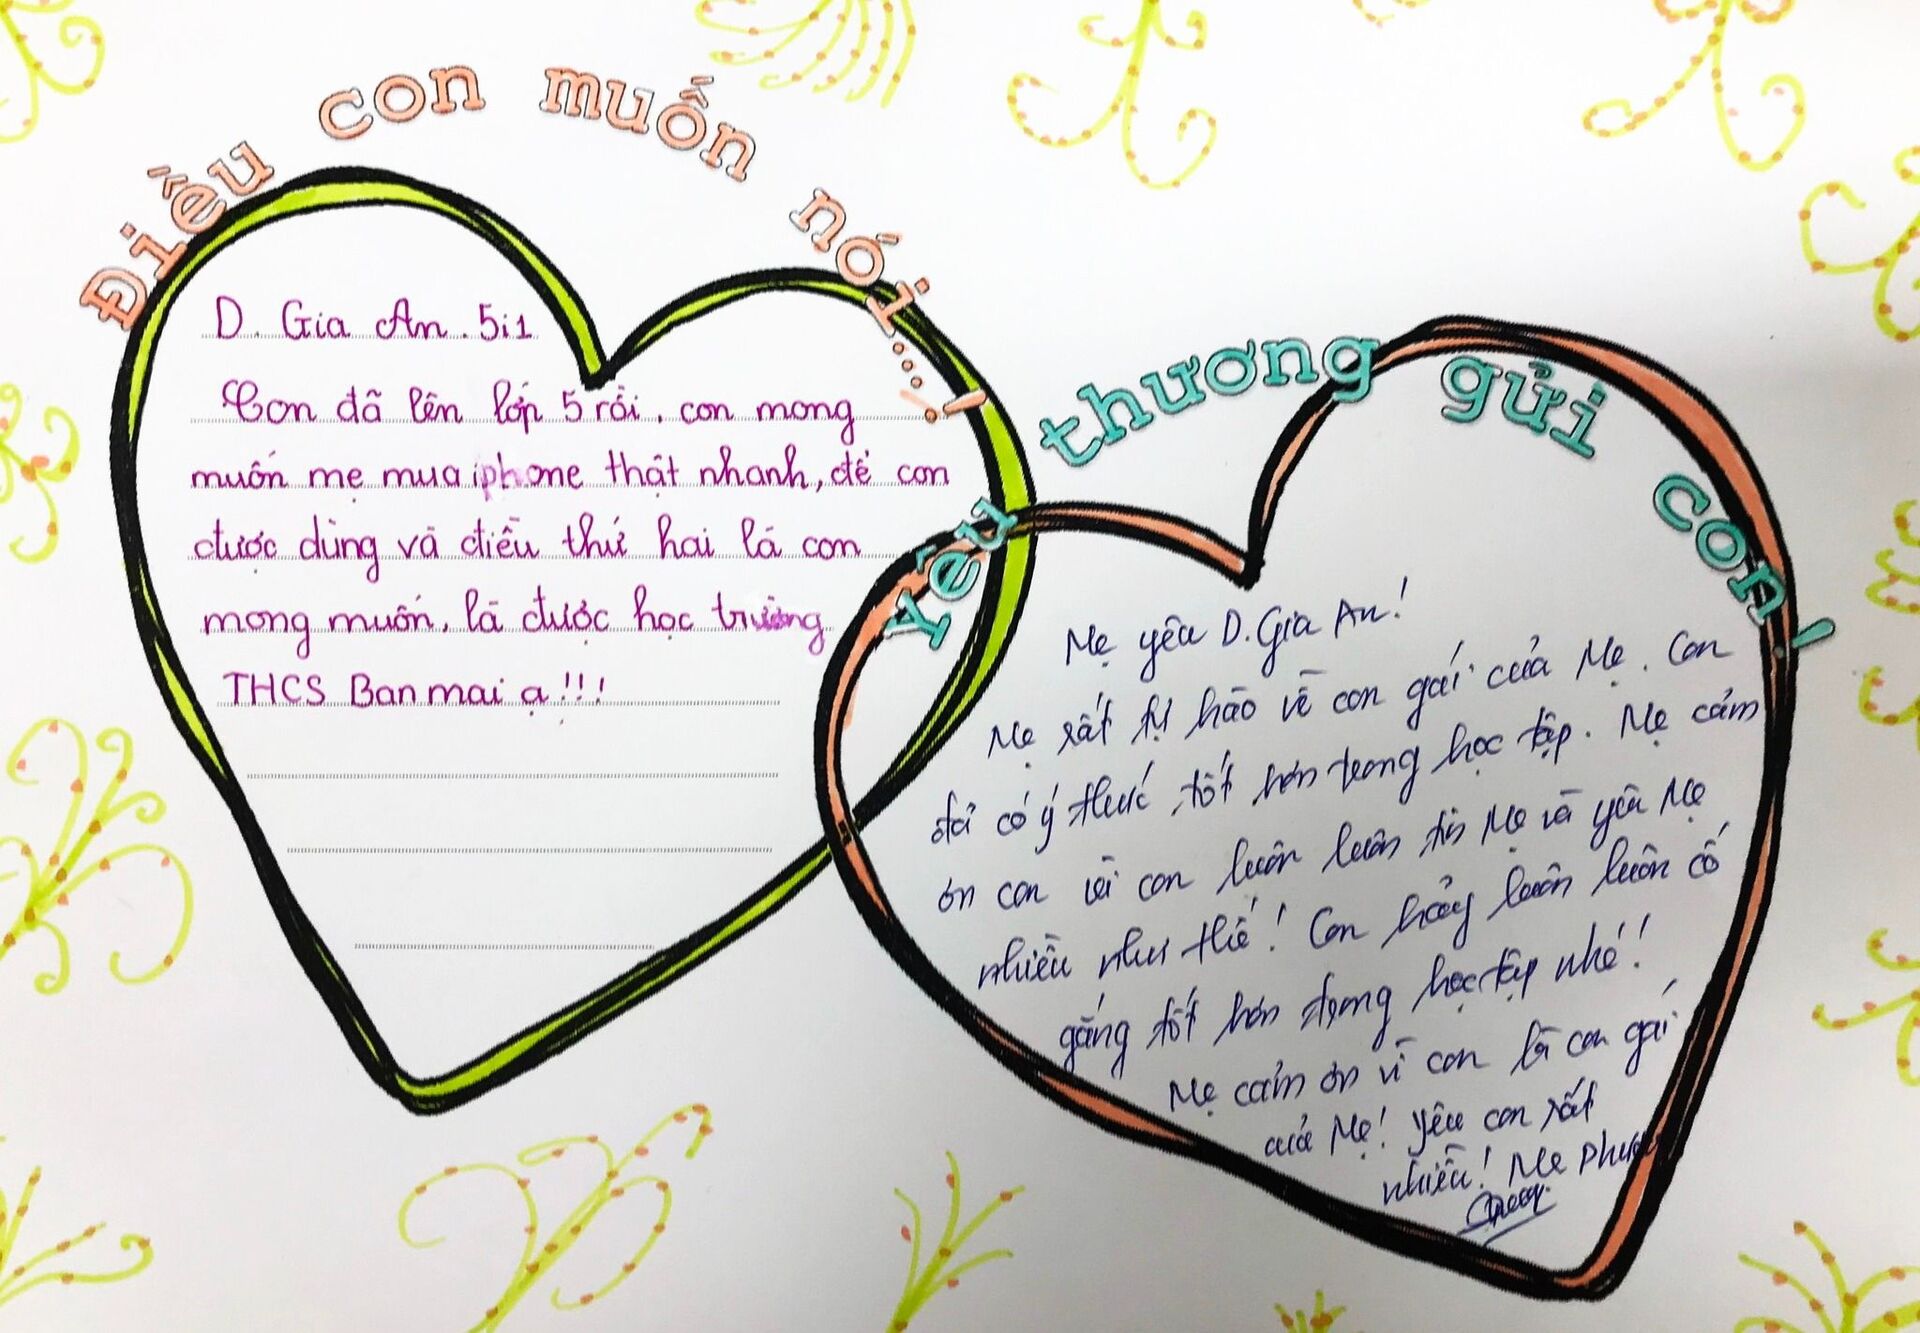 Điều con muốn nói...!
D. Gia An. 5i1
Con đã lên lớp 5 rồi, con mong
muốn mẹ mua iphone thật nhanh, để con
được dùng và điều thứ hai là con
mong muốn, là được học trường
THCS Ban mai ạ!!!
Yêu thương gửi con!
Mẹ yêu D. Gia An!
Mẹ rất tự hào về con gái của Mẹ. Con
đã có ý thức tốt hơn trong học tập. Mẹ cảm
ơn con vì con luôn luôn tin Mẹ và yêu Mẹ
nhiều như thế! Con hãy luôn luôn cố
gắng tốt hơn trong học tập nhé!
Mẹ cảm ơn vì con là con gái
của Mẹ! Yêu con rất
nhiều! Mẹ